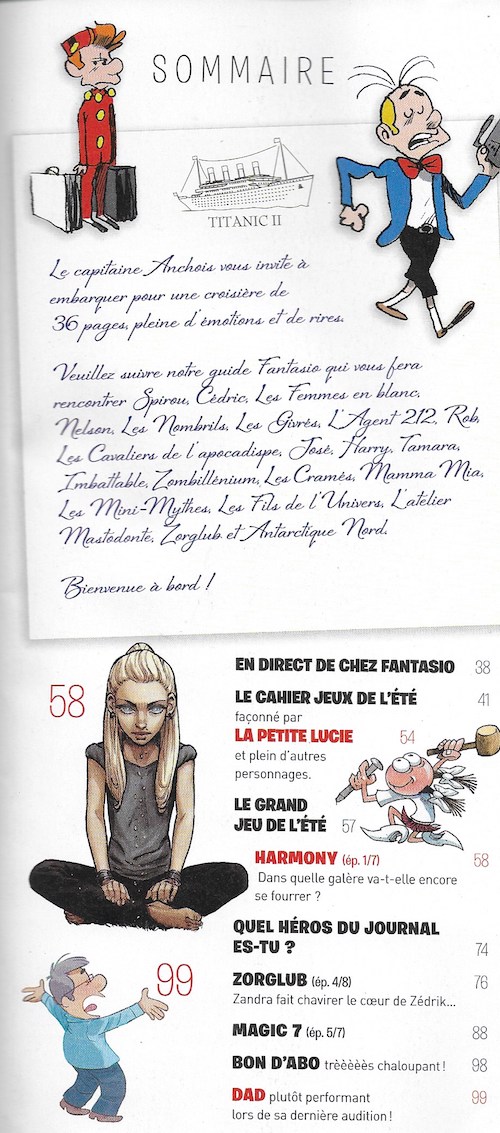 SOMMAIRE
TITANIC II
Le capitaine Anchois vous invite à
embarquer pour une croisière de
36 pages, pleine d'émotions et de rires.
Veuillez suivre notre guide Fantasio qui vous fera
rencontrer Spirou, Cédric, Les Femmes en blanc,
Nelson, Les Nombrils, Les Givrés, L'Agent 212, Rob,
Les Cavaliers de l'apocadispe, José, Harry, Tamara,
Imbattable, Zombillénium, Les Cramés, Mamma Mia,
Les Mini-Mythes, Les Fils de l'Univers, L'atelier
Mastodonte, Zorglub et Antarctique Nord.
Bienvenue à bord !
58
EN DIRECT DE CHEZ FANTASIO 38
LE CAHIER JEUX DE L'ÉTÉ 41
façonné par
LA PETITE LUCIE 54
et plein d'autres
personnages.
LE GRAND
JEU DE L'ÉTÉ 57
HARMONY (ép. 1/7) 58
Dans quelle galère va-t-elle encore
se fourrer ?
QUEL HÉROS DU JOURNAL
ES-TU ? 74
99
ZORGLUB (ép. 4/8) 76
Zandra fait chavirer le cœur de Zédrik...
MAGIC 7 (ép. 5/7) 88
BON D'ABO trèèèèès chaloupant ! 98
DAD plutôt performant 99
lors de sa dernière audition !